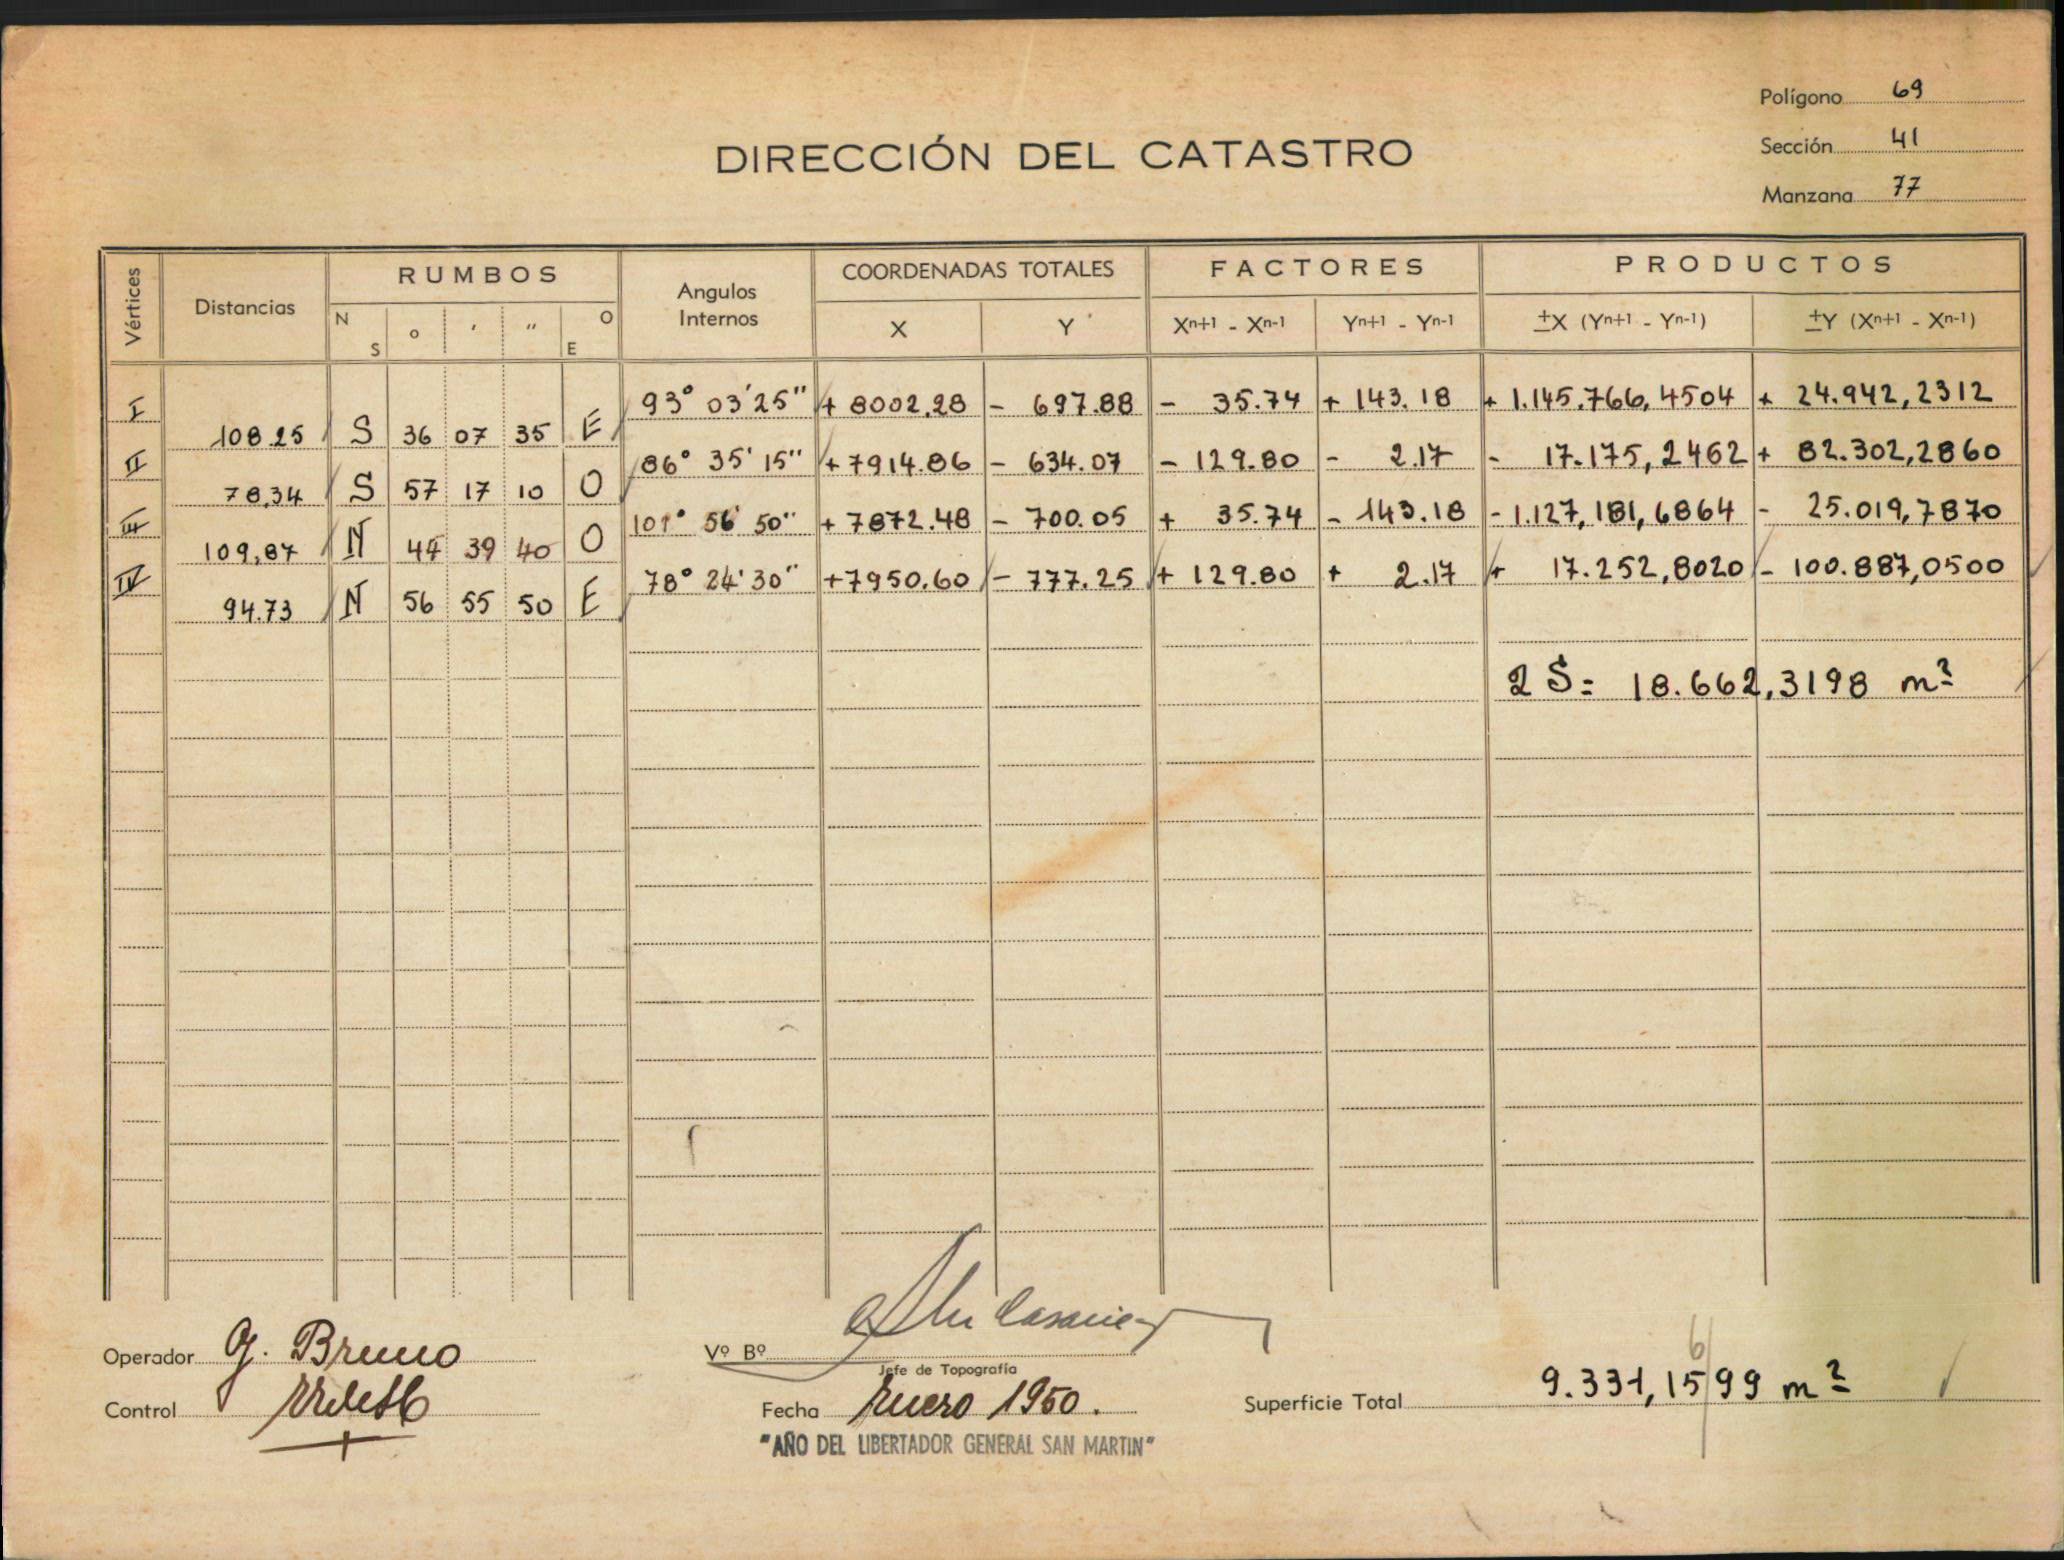 Polígono 69
Sección 41
Manzana 77
DIRECCIÓN DEL CATASTRO
Vértices Distancias RUMBOS Angulos Internos COORDENADAS TOTALES FACTORES PRODUCTOS
N S ° ' " O E X Y Xn+1 - Xn-1 Yn+1 - Yn-1 ±X (Yn+1 - Yn-1) ±Y (Xn+1 - Xn-1)
I 93° 03' 25" + 8002.28 - 697.88 - 35.74 + 143.18 + 1.145.766,4504 + 24.942,2312
108.25 S 36 07 35 E
II 86° 35' 15" + 7914.86 - 634.07 - 129.80 - 2.17 - 17.175,2462 + 82.302,2860
78,34 S 57 17 10 O
III 101° 56' 50" + 7872.48 - 700.05 + 35.74 - 143.18 - 1.127,181,6864 - 25.019,7870
109,87 N 44 39 40 O
IV 78° 24' 30" + 7950.60 - 777.25 + 129.80 + 2.17 + 17.252,8020 - 100.887,0500
94.73 N 56 55 50 E
2 S = 18.662,3198 m²
Operador G. Bruno
Control
Vº Bº
Jefe de Topografía
Fecha Enero 1950.
"AÑO DEL LIBERTADOR GENERAL SAN MARTIN"
6
Superficie Total 9.331,1599 m²